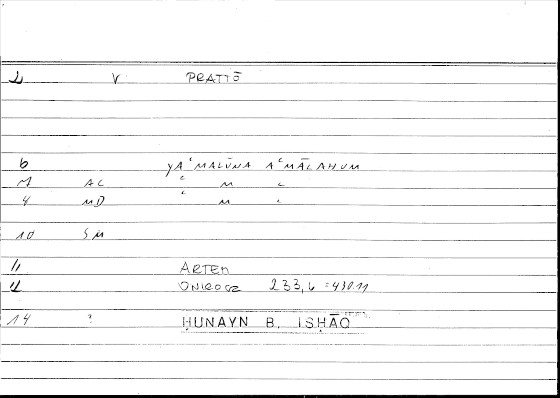 1 V PRATTŌ
6 YAʿMALŪNA AʿMĀLAHUM
AC " M "
4 MD " M "
10 SM
11 ARTEM
12 ONIROCR 233,6 = 430.11
14 ḤUNAYN B. ISḤĀQ